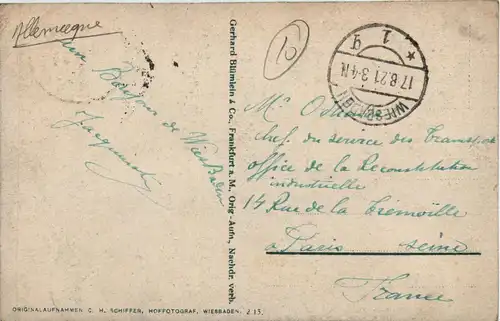 Allemagne
un Bonjour de WiesBaden
Gerhard Blümlein & Co., Frankfurt a. M., Orig.-Aufn., Nachdr. verb.
10
WIESBADEN
17.8.21 3-4 N.
* 1 q
Mr
chef du service des Transports
office de la Reconstitution
industrielle
14 Rue de la Trémoille
a Paris Seine
France
ORIGINALAUFNAHMEN C. H. SCHIFFER, HOFFOTOGRAF, WIESBADEN. 2 13.